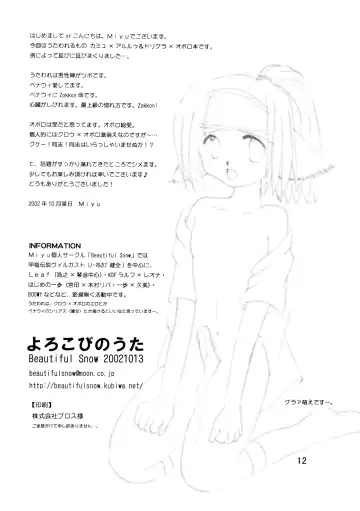 はじめまして or こんにちは。Ｍｉｙｕでございます。
今回はうたわれるもの カミュ × アルルゥ & ドリグラ × オボロ本です。
例によって延びに延びまくりました…。
うたわれは男性陣がツボです。
ベナウィ愛してます。
ベナウィに Zokkon 命です。
心臓がしびれます。最上最の惚れ方です。Zokkon!
オボロは受だと思ってます。オボロ総受。
個人的にはクロウ × オボロ激萌えなのですが〜…
グケー！同志！同志はいらっしゃいませぬか！？
と、話題がすっかり廃れてきたところでシメます。
少しでもお楽しみ頂ければ幸いでございます♪
どうもありがとうございました！
2002 年 10 月某日　Ｍｉｙｕ
INFORMATION
Ｍｉｙｕ個人サークル「Beautiful Snow」では
Ｌｅａｆ（浩之 × 琴音中心）・KOF ラルフ × レオナ・
はじめの一歩（宮田 × 木村リバ・一歩 × 久美）・
BOOWY などなど、節操無く活動中です。
うたわれは、クロウ × オボロのエロとか
ベナウィのシリアス（健全）とか描けるといいなと思っています〜。
よろこびのうた
Beautiful Snow 20021013
beautifulsnow@moon.co.jp
http://beautifulsnow.kubiwa.net/
【印刷】
株式会社プロス様
ご迷惑かけて申し訳ありません…。
グラァ萌えです〜。
12